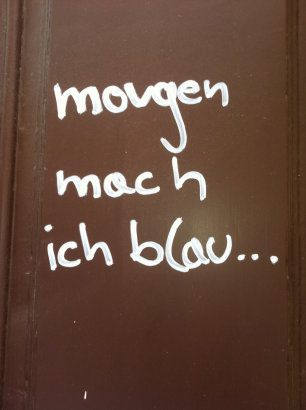 morgen
mach
ich blau...